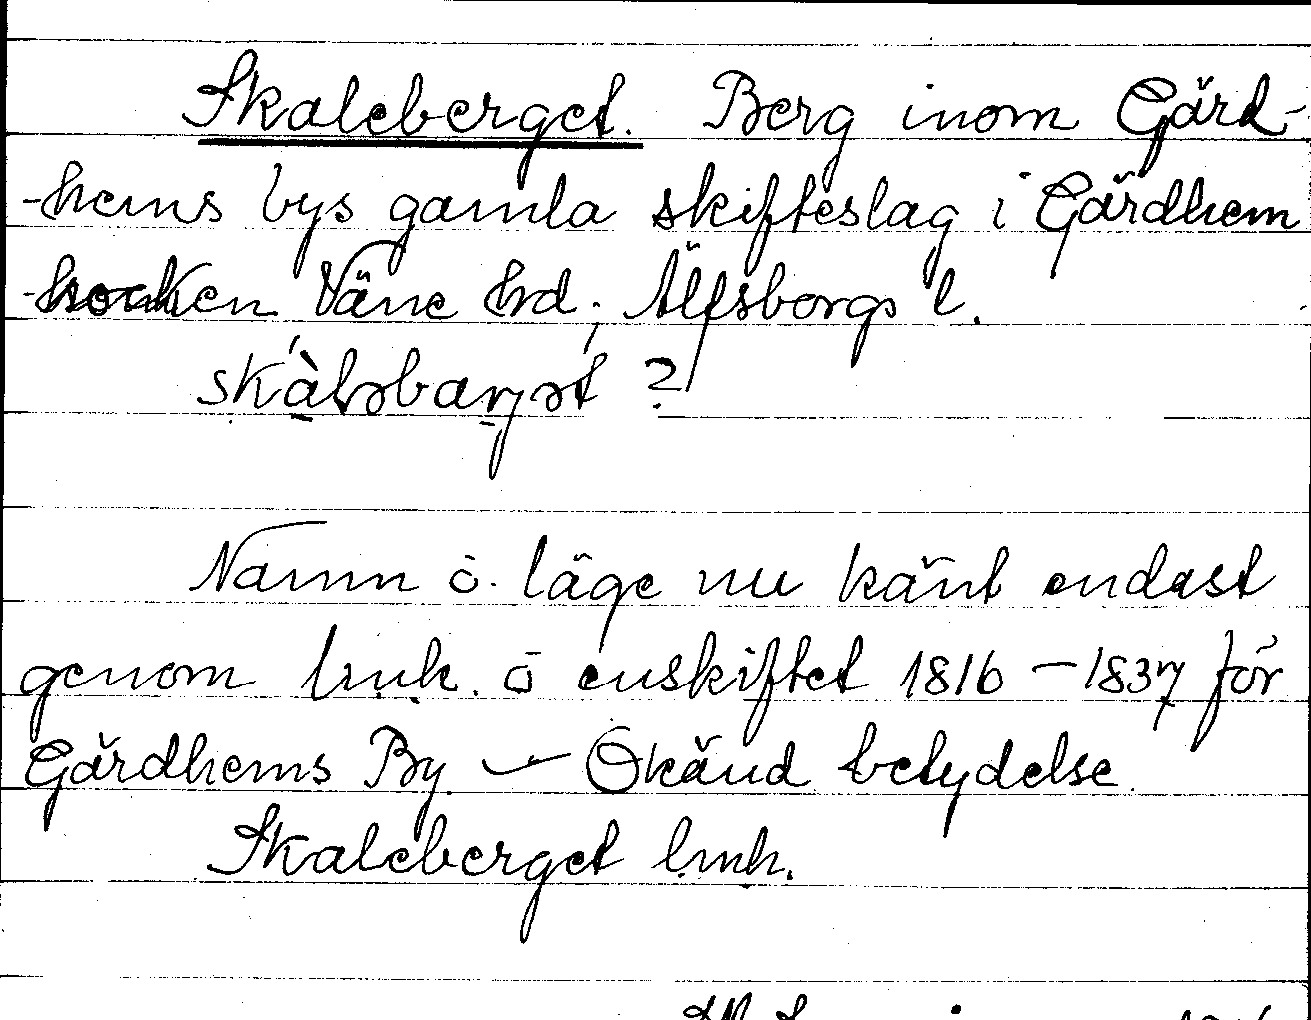 Skaleberget. Berg inom Gärd-
-hems bys gamla skifteslag i Gärdhem
-socken Väne hrd; Älfsborgs l.
skàlsbarjət ?
Namn o. läge nu känt endast
genom lmh. o enskiftet 1816 – 1837 för
Gärdhems By – Okänd betydelse
Skaleberget lmh.